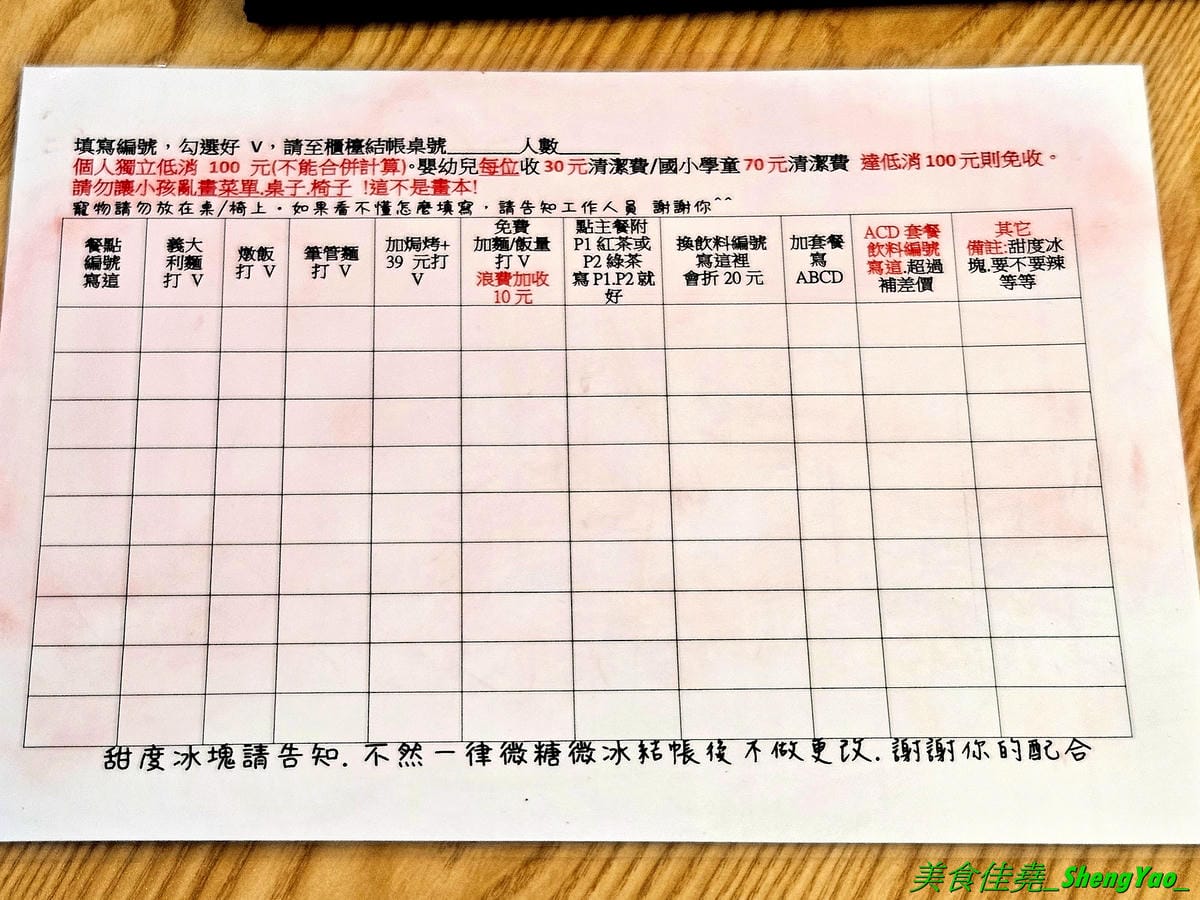 填寫編號，勾選好 V，請至櫃檯結帳桌號_______人數______
個人獨立低消 100 元(不能合併計算)。嬰幼兒每位收30元清潔費/國小學童70元清潔費 達低消100元則免收。
請勿讓小孩亂畫菜單.桌子.椅子 !這不是畫本!
寵物請勿放在桌/椅上。如果看不懂怎麼填寫，請告知工作人員 謝謝你^^
餐點
編號
寫這
義大
利麵
打 V
燉飯
打 V
筆管麵
打 V
加焗烤+
39 元打
V
免費
加麵/飯量
打 V
浪費加收
10 元
點主餐附
P1 紅茶或
P2 綠茶
寫 P1.P2 就
好
換飲料編號
寫這裡
會折 20 元
加套餐
寫
ABCD
ACD 套餐
飲料編號
寫這.超過
補差價
其它
備註:甜度冰
塊.要不要辣
等等
甜度冰塊請告知.不然一律微糖微冰結帳後不做更改.謝謝你的配合
美食佳堯_ShengYao_